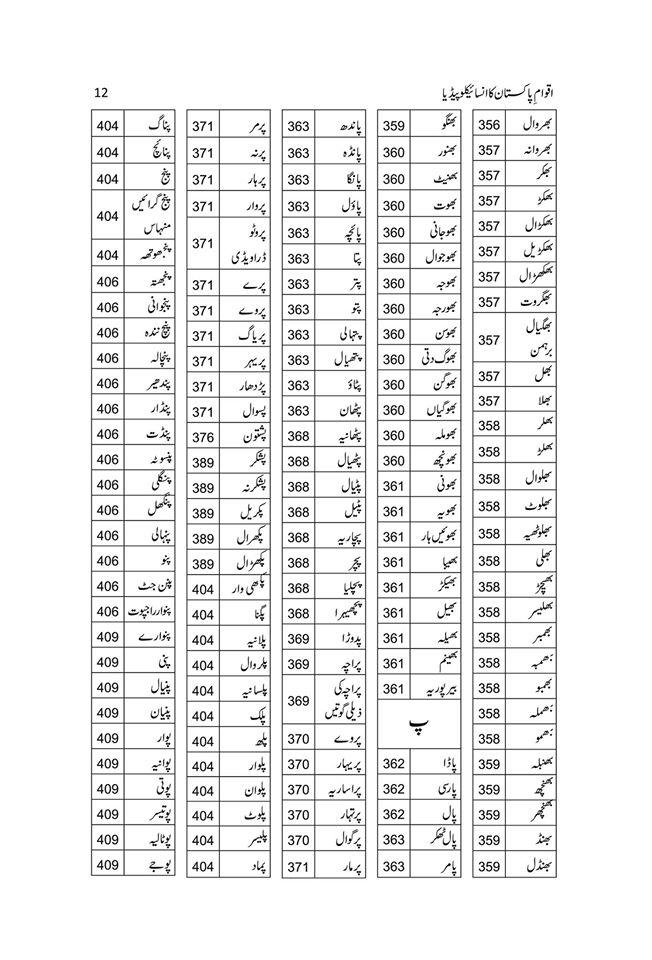 اقوامِ پاکستان کا انسائیکلوپیڈیا 12
بھروال 356
بھروانہ 357
بھکر 357
بھکڑ 357
بھکڑال 357
بھکڑیل 357
بھکھڑال 357
بھگروت 357
بھگیال برہمن 357
بھل 357
بھلا 357
بھلر 358
بھلڑ 358
بھلوال 358
بھلوٹ 358
بھلوٹھیہ 358
بھلی 358
بھچڑ 358
بھلیسر 358
بھمبر 358
بھمبہ 358
بھمبو 358
بھملہ 358
بھمو 358
بھنبلہ 359
بھنچھ 359
بھنچھر 359
بھنڈ 359
بھنڈل 359
بھنگو 359
بھنور 360
بھنیٹ 360
بھوت 360
بھوجانی 360
بھوجوال 360
بھوجہ 360
بھورجہ 360
بھوسن 360
بھوگ دتی 360
بھوگن 360
بھوگیاں 360
بھوملہ 360
بھونچھ 360
بھونی 361
بھویہ 361
بھوئیں ہار 361
بھییا 361
بھیکڑ 361
بھیل 361
بھیلہ 361
بھینم 361
بیرپوریہ 361
پ
پاڈا 362
پارسی 362
پال 362
پال ٹھکر 363
پامر 363
پاندھ 363
پانڈہ 363
پانگا 363
پاؤل 363
پائچہ 363
پتا 363
پتر 363
پتو 363
پتہالی 363
پتھیال 363
پٹاؤ 363
پٹھان 363
پٹھانیہ 368
پٹھیال 368
پٹیال 368
پٹیل 368
پچاریہ 368
پچر 368
پچلیا 368
پچھیرا 368
پدوڑا 369
پراچہ 369
پراچہ کی ذیلی گوتیں 369
پروے 370
پریہار 370
پراساریہ 370
پرتہار 370
پرگوال 370
پرمار 371
پرمر 371
پرنہ 371
پرہار 371
پروار 371
پروٹو ڈراویڈی 371
پرے 371
پروے 371
پریاگ 371
پریہر 371
پڑدھار 371
پسوال 371
پشتون 376
پشکر 389
پشکرنہ 389
پکریل 389
پکھرال 389
پکھڑال 389
پکھی وار 404
پگنا 404
پلانیہ 404
پلروال 404
پلسانیہ 404
پلک 404
پلھ 404
پلوار 404
پلوان 404
پلوٹ 404
پلیسر 404
پماد 404
پناگ 404
پنائچ 404
پنج 404
پنج گرائیں منہاس 404
پنجھوتھہ 404
پنجھتہ 406
پنجوانی 406
پنچ نندہ 406
پنچالہ 406
پندھیر 406
پنڈار 406
پنڈت 406
پنسوٹہ 406
پنگلی 406
پنگھل 406
پنہالی 406
پنو 406
پنن جٹ 406
پنوار راجپوت 406
پنوارے 409
پنی 409
پنیال 409
پنیان 409
پوار 409
پوانیہ 409
پوتی 409
پوتیسر 409
پوٹالیہ 409
پوجے 409